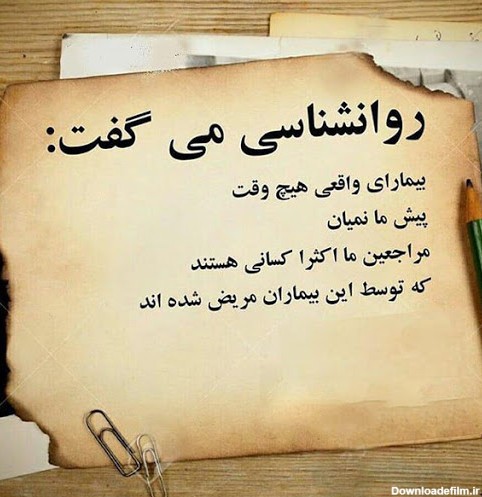 روانشناسی می گفت:
بیمارای واقعی هیچ وقت
پیش ما نمیان
مراجعین ما اکثرا کسانی هستند
که توسط این بیماران مریض شده اند
Downloadefilm.ir